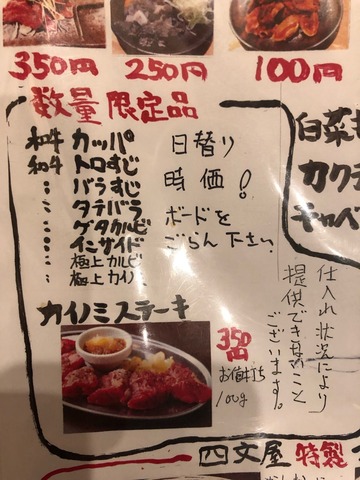 350円 250円 100円
数量限定品
和牛 カッパ
和牛 トロすじ
〃 バラすじ
〃 タテバラ
〃 ゲタカルビ
〃 インサイド
〃 極上カルビ
〃 極上カイノミ
日替り
時価!
ボードを
ごらん下さい
白菜
カクテ
チャンベ
カイノミステーキ
350円
お値打ち
100g
仕入れ状況により
提供できないこと
ございます。
四文屋 特製